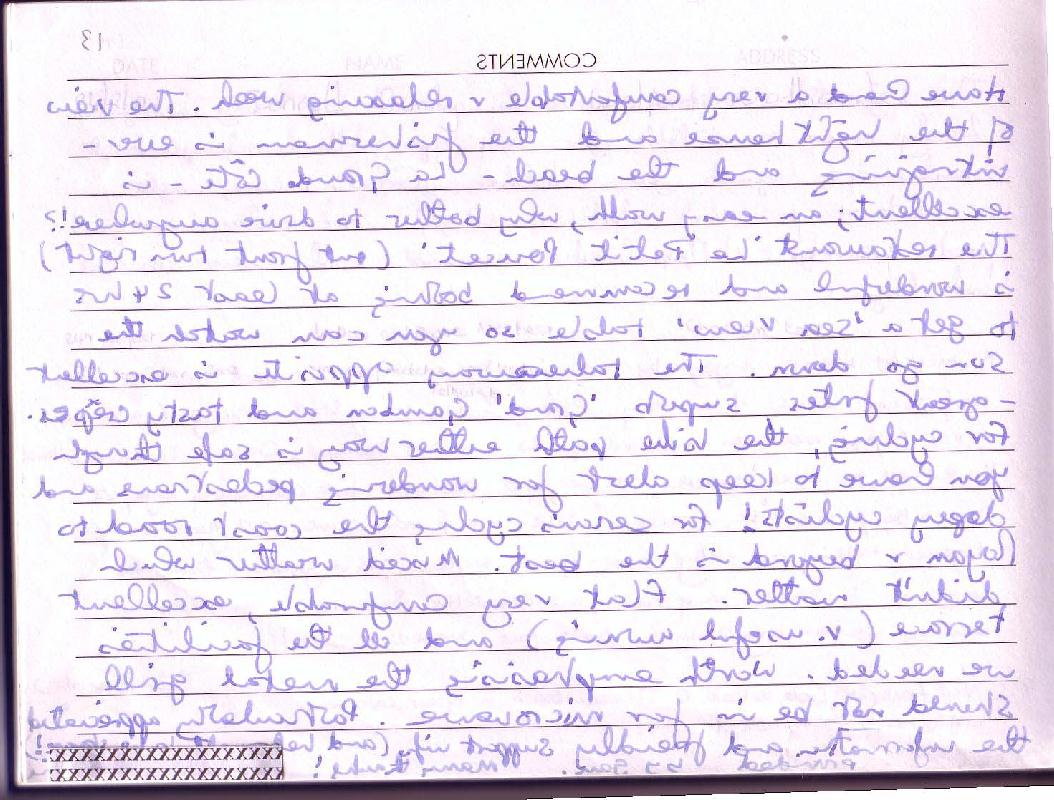 13
COMMENTS
Have had a very comfortable & relaxing week. The view
of the lighthouse and the fisherman is ever-
intriguing and the beach - La Grande Côte - is
excellent; an easy walk, why bother to drive anywhere!?
The restaurant 'Le Petit Poucet' (out front turn right)
is wonderful and recommend booking at least 24 hrs
to get a 'sea view' table so you can watch the
sun go down. The takeaway opposite is excellent
- great frites superb 'Gand' Gambas and tasty crêpes.
For cycling, the bike path either way is safe though
you have to keep alert for wondering pedestrians and
dodgy cyclists! For serious cycling the coast road to
Royan & beyond is the best. Mixed weather which
didn't matter. Flat very comfortable, excellent
terrace (v. useful awning) and all the facilities
we needed. Worth emphasising the metal grill
should not be in for microwave. Particularly appreciated
the information and friendly support info (and
provided by Jane. Many thanks!